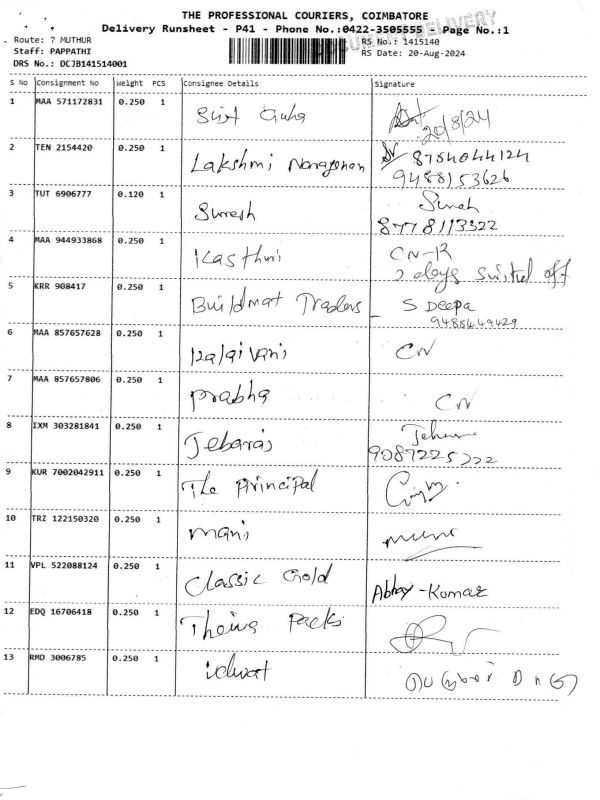 THE PROFESSIONAL COURIERS, COIMBATORE
Delivery Runsheet - P41 - Phone No.:0422-3505555 - Page No.:1
DELIVERY
Route: 7 MUTHUR
RS No.: 1415140
Staff: PAPPATHI
RS Date: 20-Aug-2024
DRS No.: DCJB141514001
S No Consignment No Weight PCS Consignee Details Signature
1 MAA 571172831 0.250 1 Guha 20/8/24
2 TEN 2154420 0.250 1 Lakshmi Narayanan 8754044124
9488153626
3 TUT 6906777 0.120 1 Suresh Suresh
8778113322
4 MAA 944933868 0.250 1 Kasthuri CN-R
2 days off
5 KRR 908417 0.250 1 Buildmat Traders S Deepa
9485449429
6 MAA 857657628 0.250 1 Kalaivani CN
7 MAA 857657806 0.250 1 Prabha CN
8 IXM 303281841 0.250 1 Jebaraj
9087225222
9 KUR 7002042911 0.250 1 The Principal
10 TRZ 122150320 0.250 1 Mani
11 VPL 522088124 0.250 1 Classic Gold Abhay-Kumar
12 EDQ 16706418 0.250 1 Packs
13 RMD 3006785 0.250 1